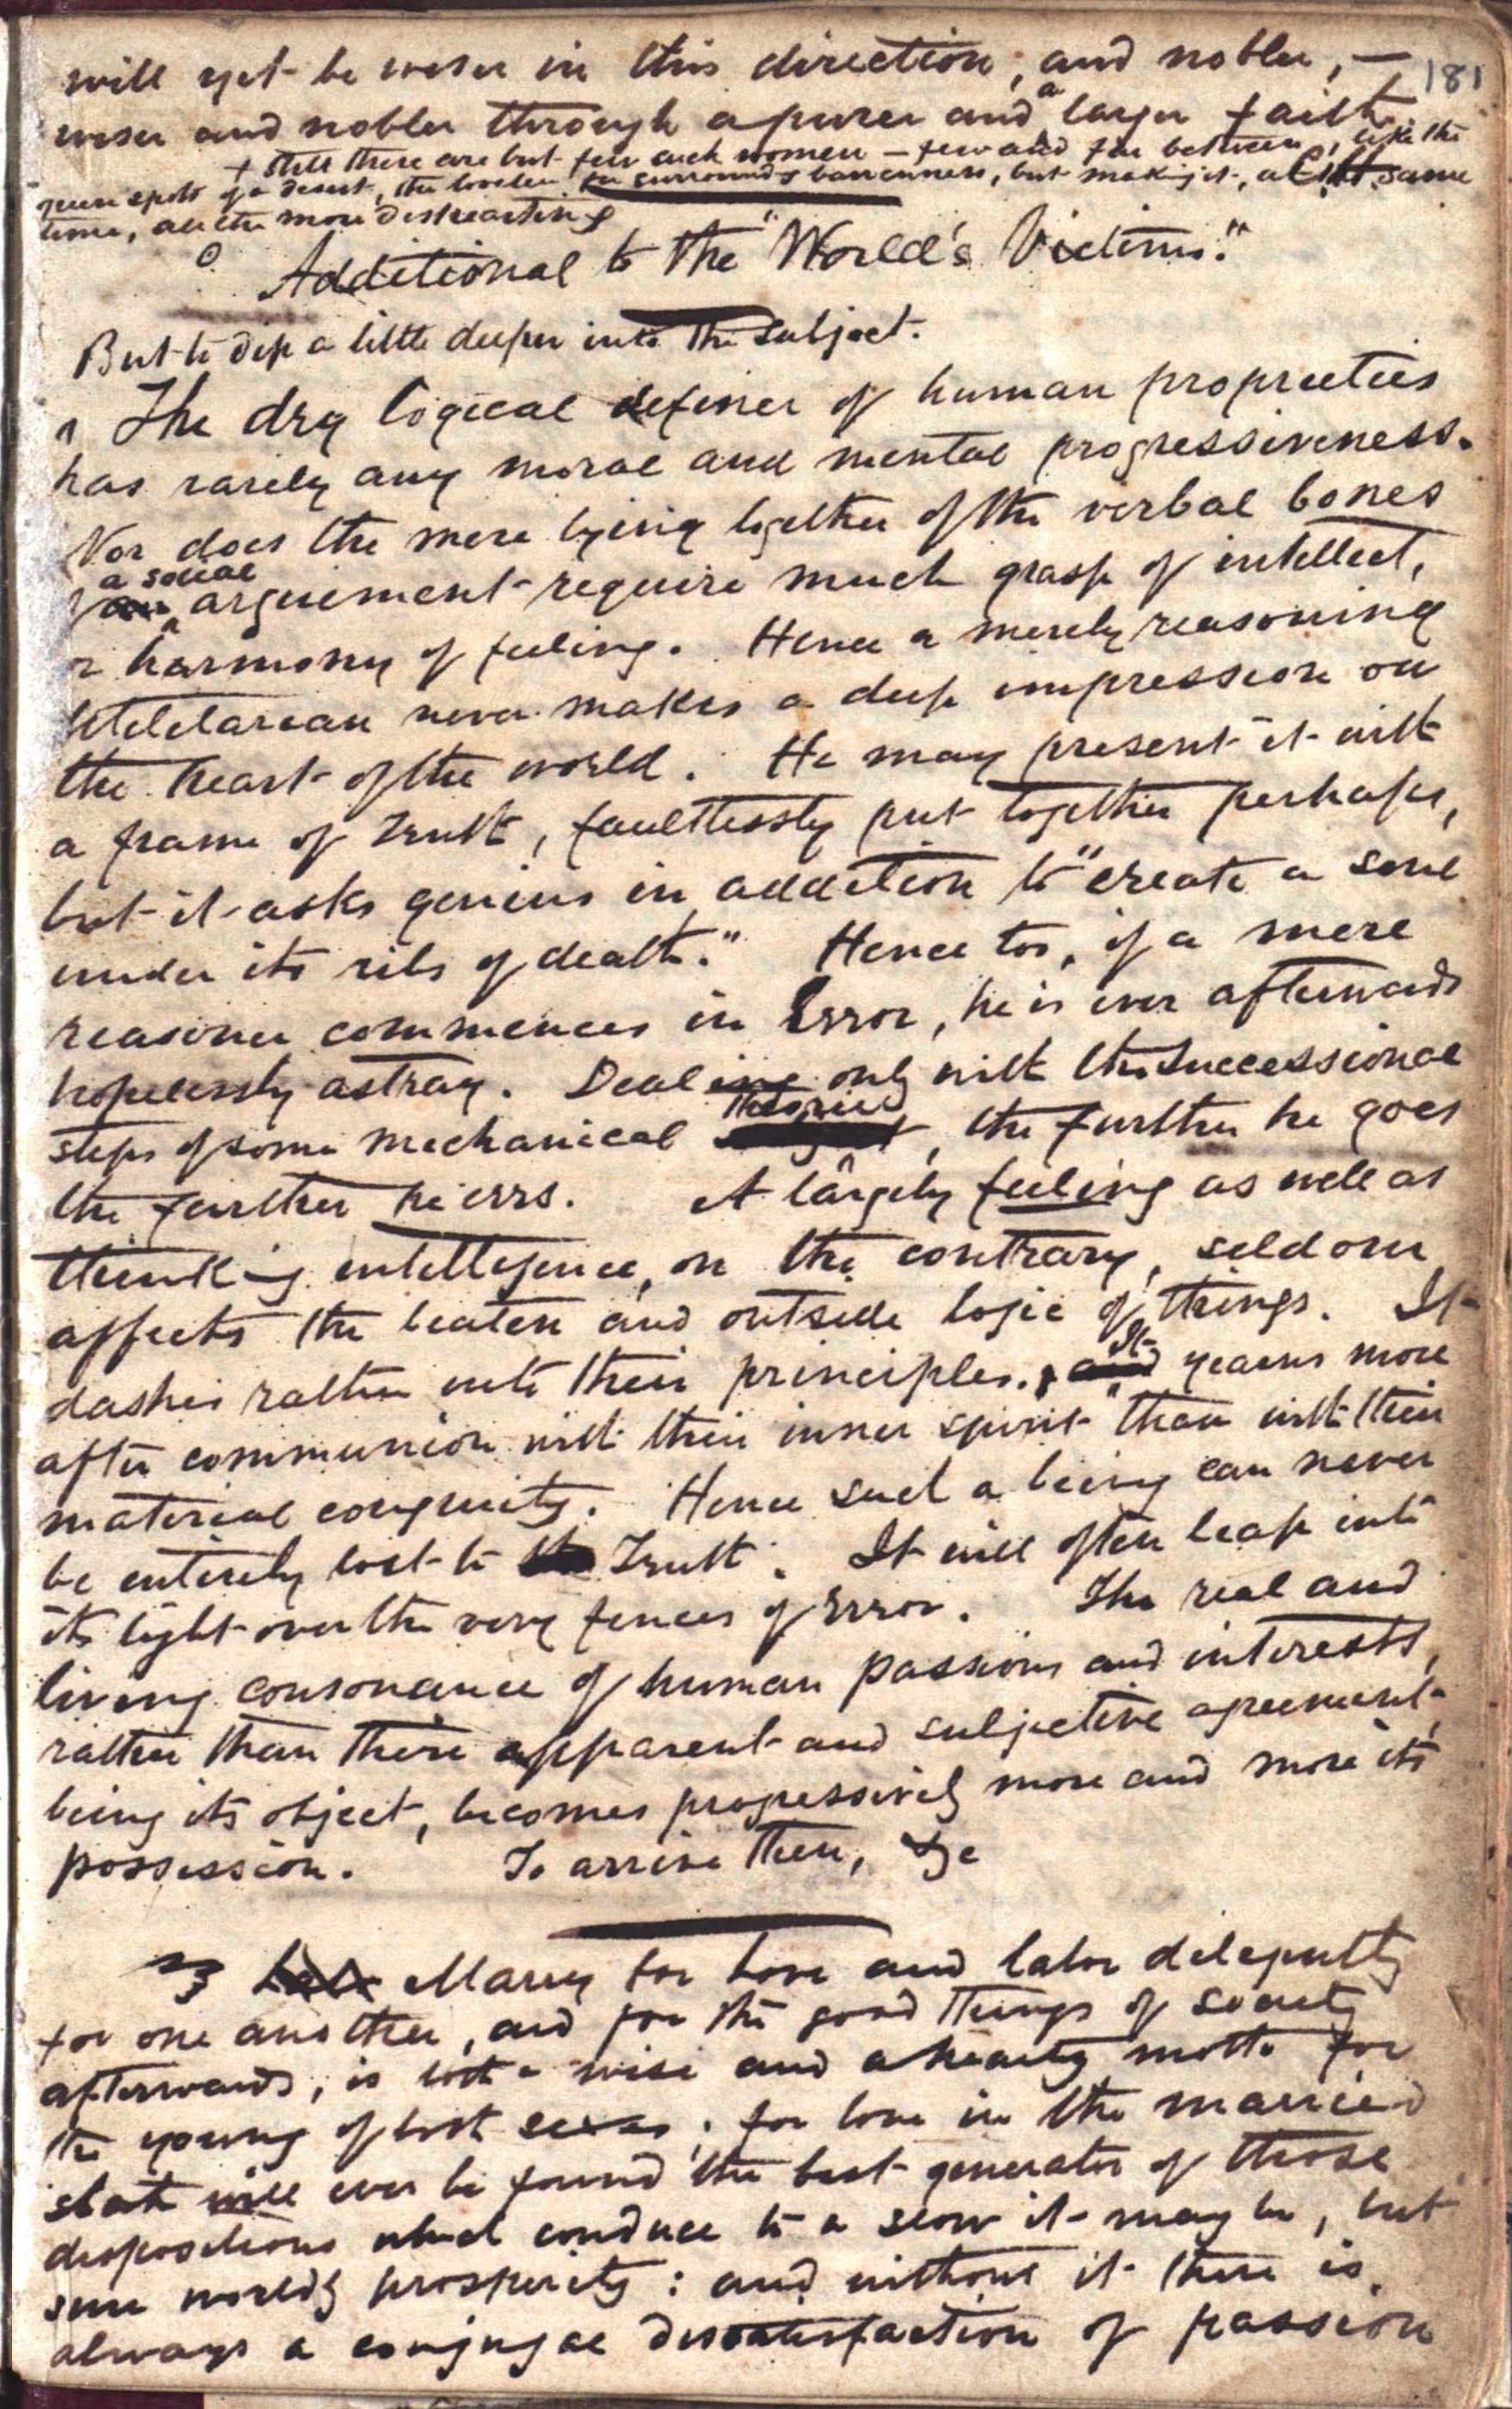 181
will yet be wiser in this direction, and nobler, —
wiser and nobler through a purer and a larger faith.
+ Still there are but few such women — few and far between, like the
green spots of a desert, the lovelier for surrounding barrenness, but making it, at the same
time, all the more disheartening
Additional to the "World's Victims."
But to dip a little deeper into the subject.
The dry logical definer of human proprieties
has rarely any moral and mental progressiveness.
Nor does the mere tying together of the verbal bones
a social
of an arguement require much grasp of intellect,
or harmony of feeling. Hence a merely reasoning
utililarian never makes a deep impression on
the heart of the world. He may present it with
a frame of Truth, faultlessly put together perhaps,
but it asks genius in addition to "create a soul
under its ribs of death." Hence too, if a mere
reasoner commences in Error, he is ever afterwards
hopelessly astray. Dealing only with the successional
theories
steps of some mechanical , the further he goes
the further he errs. A largely feeling as well as
thinking intelligence, on the contrary, seldom
affects the beaten and outside logic of things. It
It
dashes rather into their principles. and yearns more
after communion with their inner spirit than with their
material congruity. Hence such a being can never
be entirely lost to the Truth. It will often leap into
its light over the very fences of Error. The real and
living consonance of human passions and interests,
rather than their apparent and subjective agreement,
being its object, becomes progressively more and more its
possession. To arrive then, &c
Marry for Love and labor diligently
for one another, and for the good things of society
afterwards, is both a wise and a hearty motto for
the young of both sexes; for love in the married
state will ever be found the best generator of those
dispositions which conduce to a slow it may be, but
sure worldly prosperity: and without it there is
always a conjugal dissatisfaction of passion